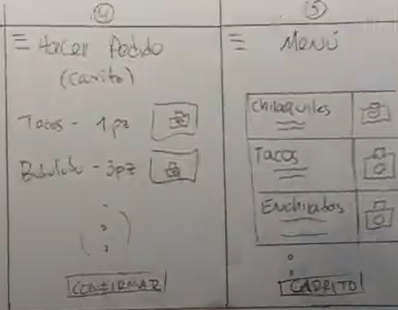 4
Hacer Pedido
(Carrito)
Tacos - 1 pz
- 3 pz
CONFIRMAR
5
Menú
Chilaquiles
Tacos
Enchiladas
CARRITO